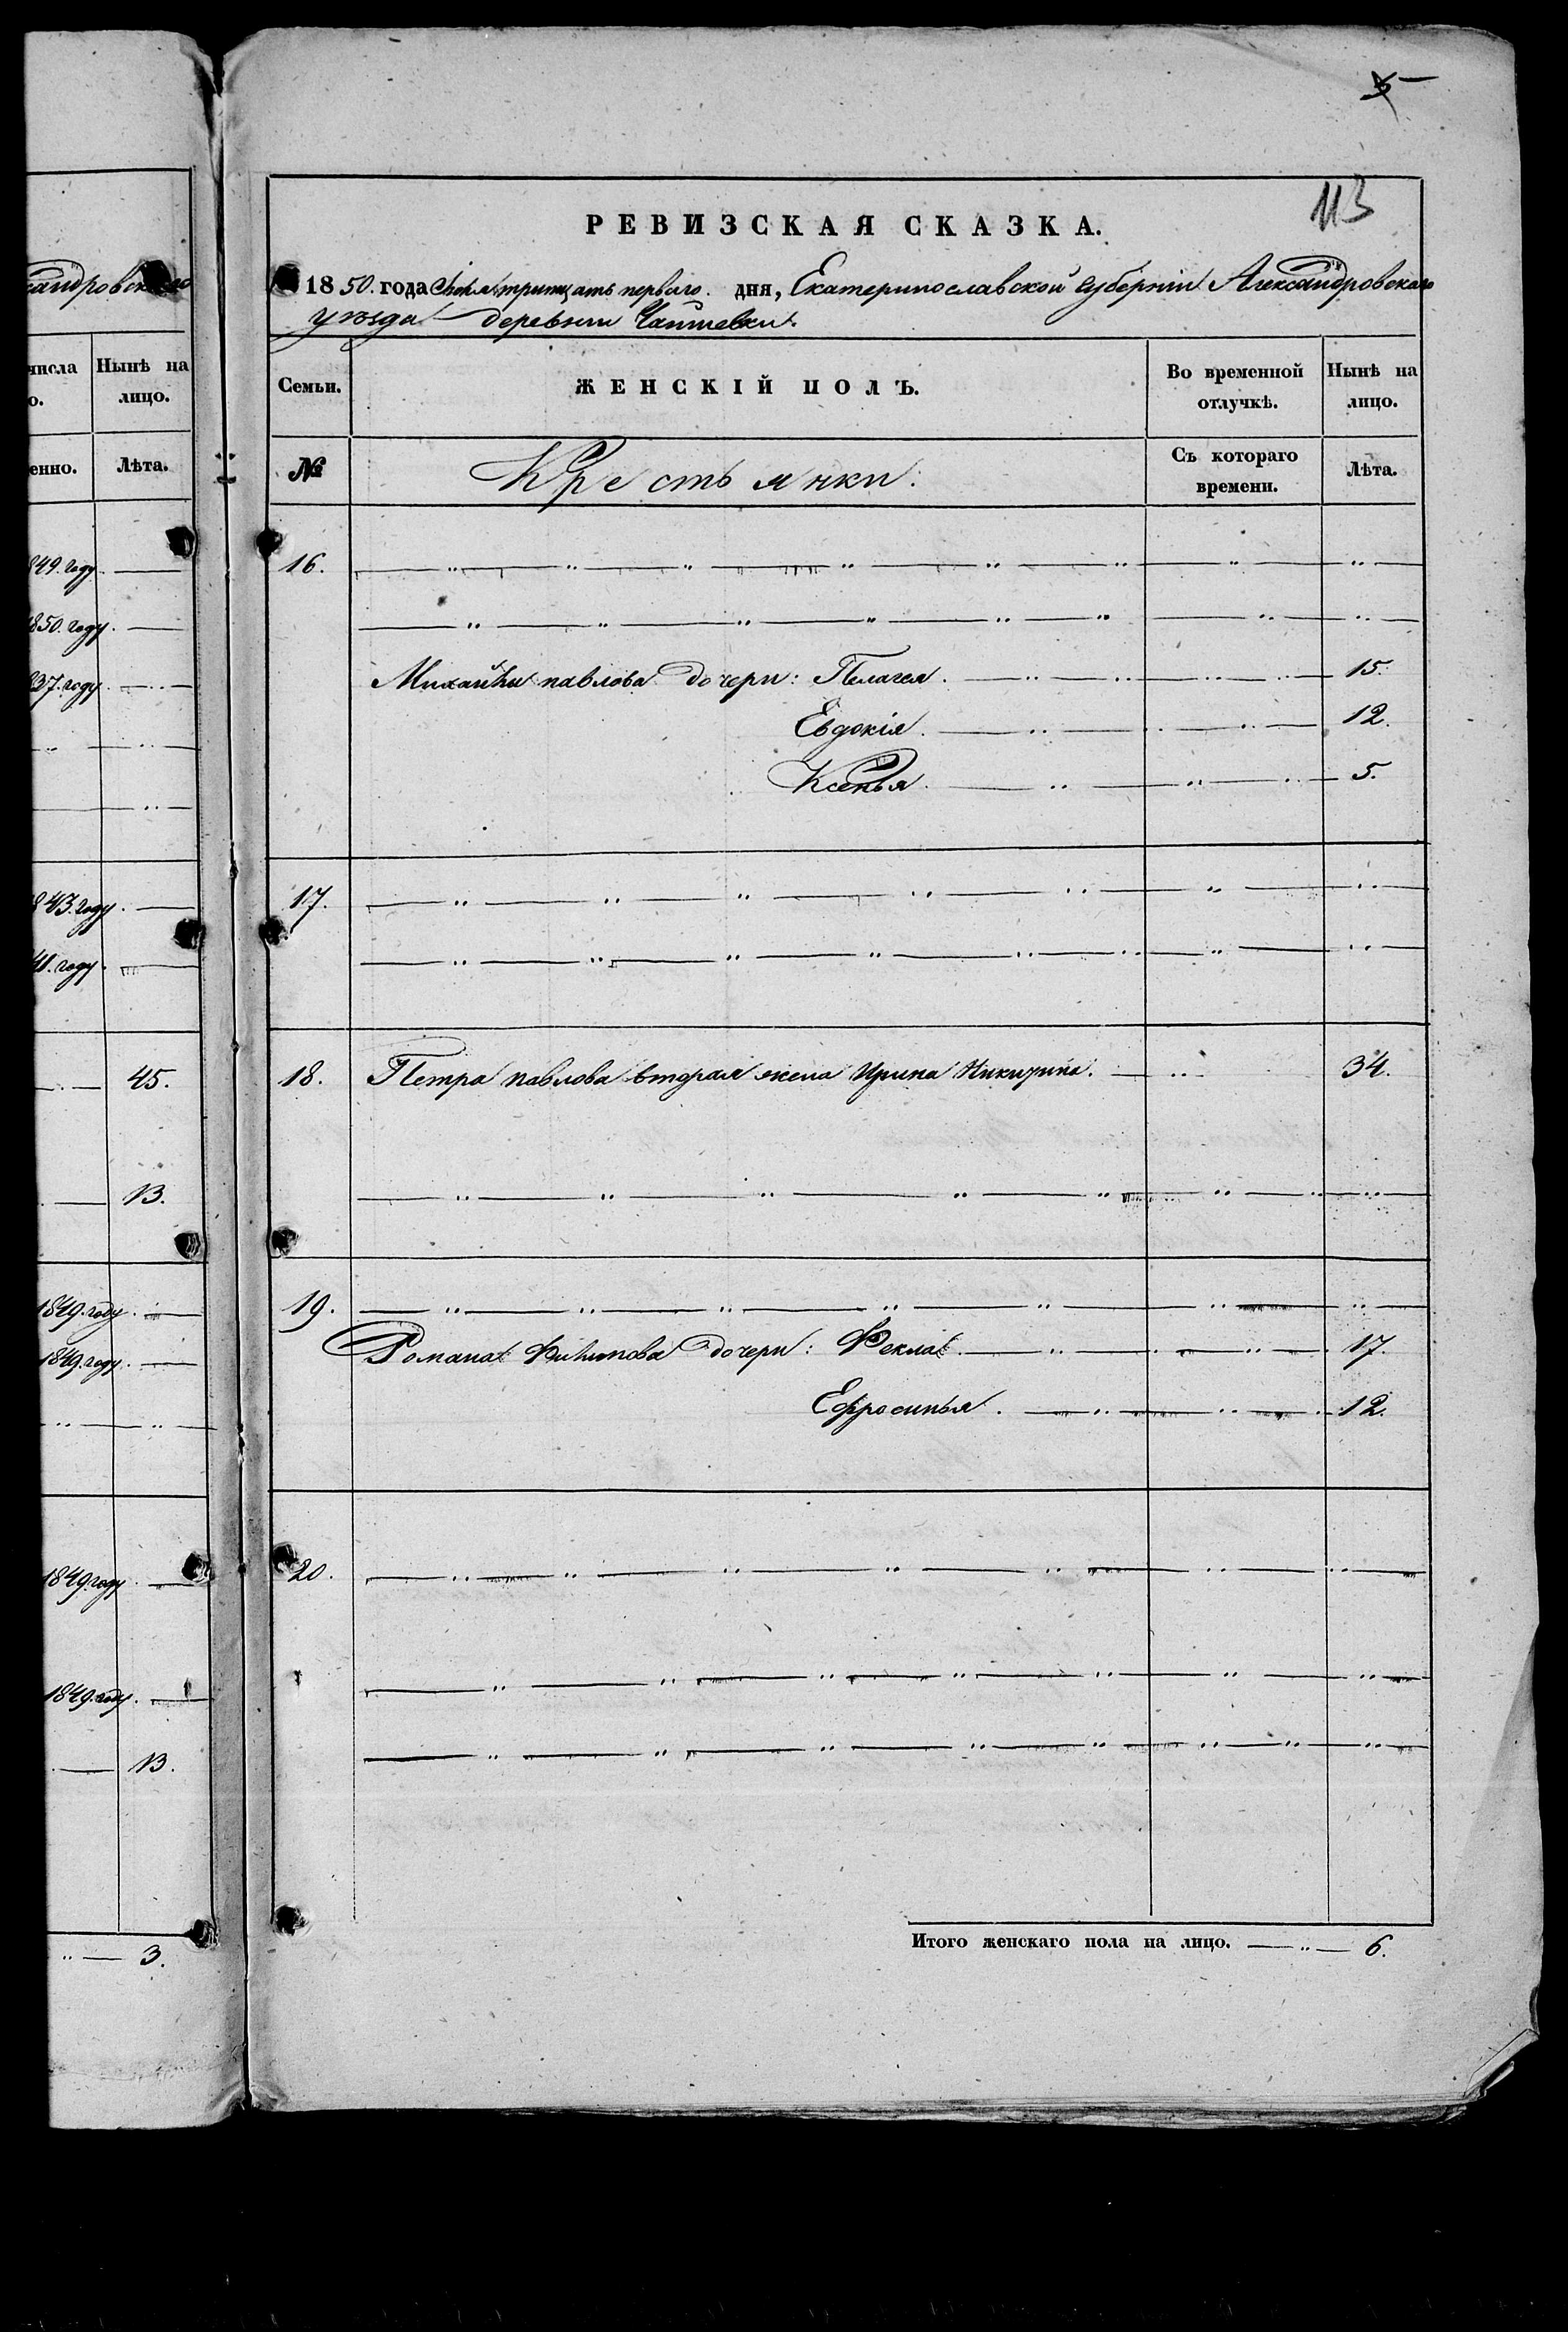 андровскаго
числа Нынѣ на
о. лицо.
енно. Лѣта.
849. году.
850. году.
837. году.
843. году.
41. году.
45.
13.
1849. году.
1849. году.
1849. году
1849. году.
13.
3.
5
113
РЕВИЗСКАЯ СКАЗКА.
1850. года тритцать перваго. дня, Екатеринославской губерніи Александровскаго
уѣзда деревни
Семьи. ЖЕНСКІЙ ПОЛЪ. Во временной отлучкѣ. Нынѣ на лицо.
№ Крестьянки: Съ котораго времени. Лѣта.
16.
Михайлы павлова дочери: Пелагея. 15.
Евдокія. 12.
Ксенья. 5.
17.
18. Петра павлова вторая жена Ирина Никитина. 34.
19.
Романа Филипова дочери: Фекла. 17.
Ефросинья. 12.
20.
Итого женскаго пола на лицо. 6.